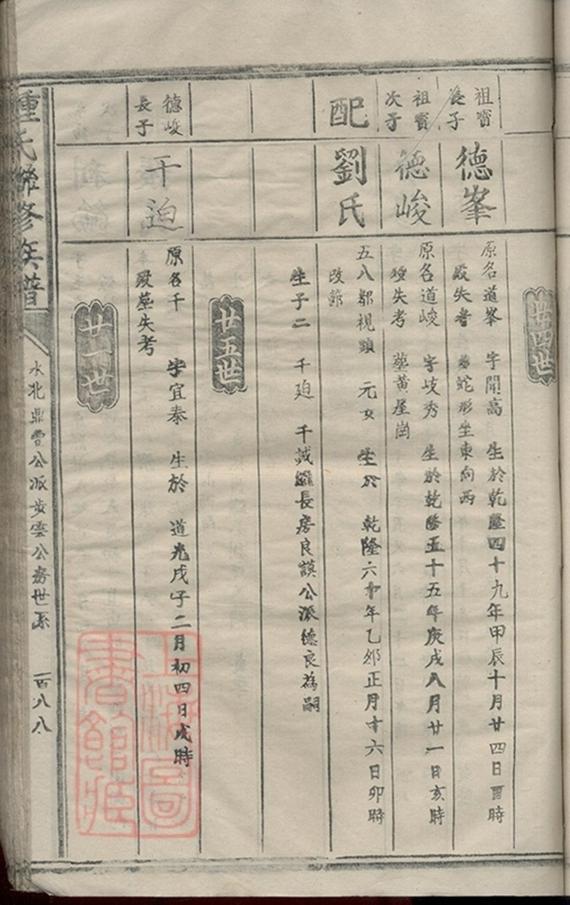 廿四世
祖寳
長子
德峯
原名道峯 字開高 生於乾隆四十九年甲辰十月廿四日酉時
歿失考 蛇形坐東向西
祖寳
次子
德峻
原名道峻 字岐秀 生於乾隆五十五年庚戌八月廿一日亥時
歿失考 塟黄屋崗
配
劉氏
五八都視頭 元女 生於 乾隆六十年乙卯正月十六日卯時
改節
生子二 千迫 千誠繼長房良謨公派德良為嗣
廿五世
德峻
長子
千迫
原名千 字宜泰 生於 道光戊子二月初四日戌時
歿塟失考
廿一世
鍾氏聯修族譜
水北鼎雷公派步雲公房世系
一百八八
上海圖
書館藏